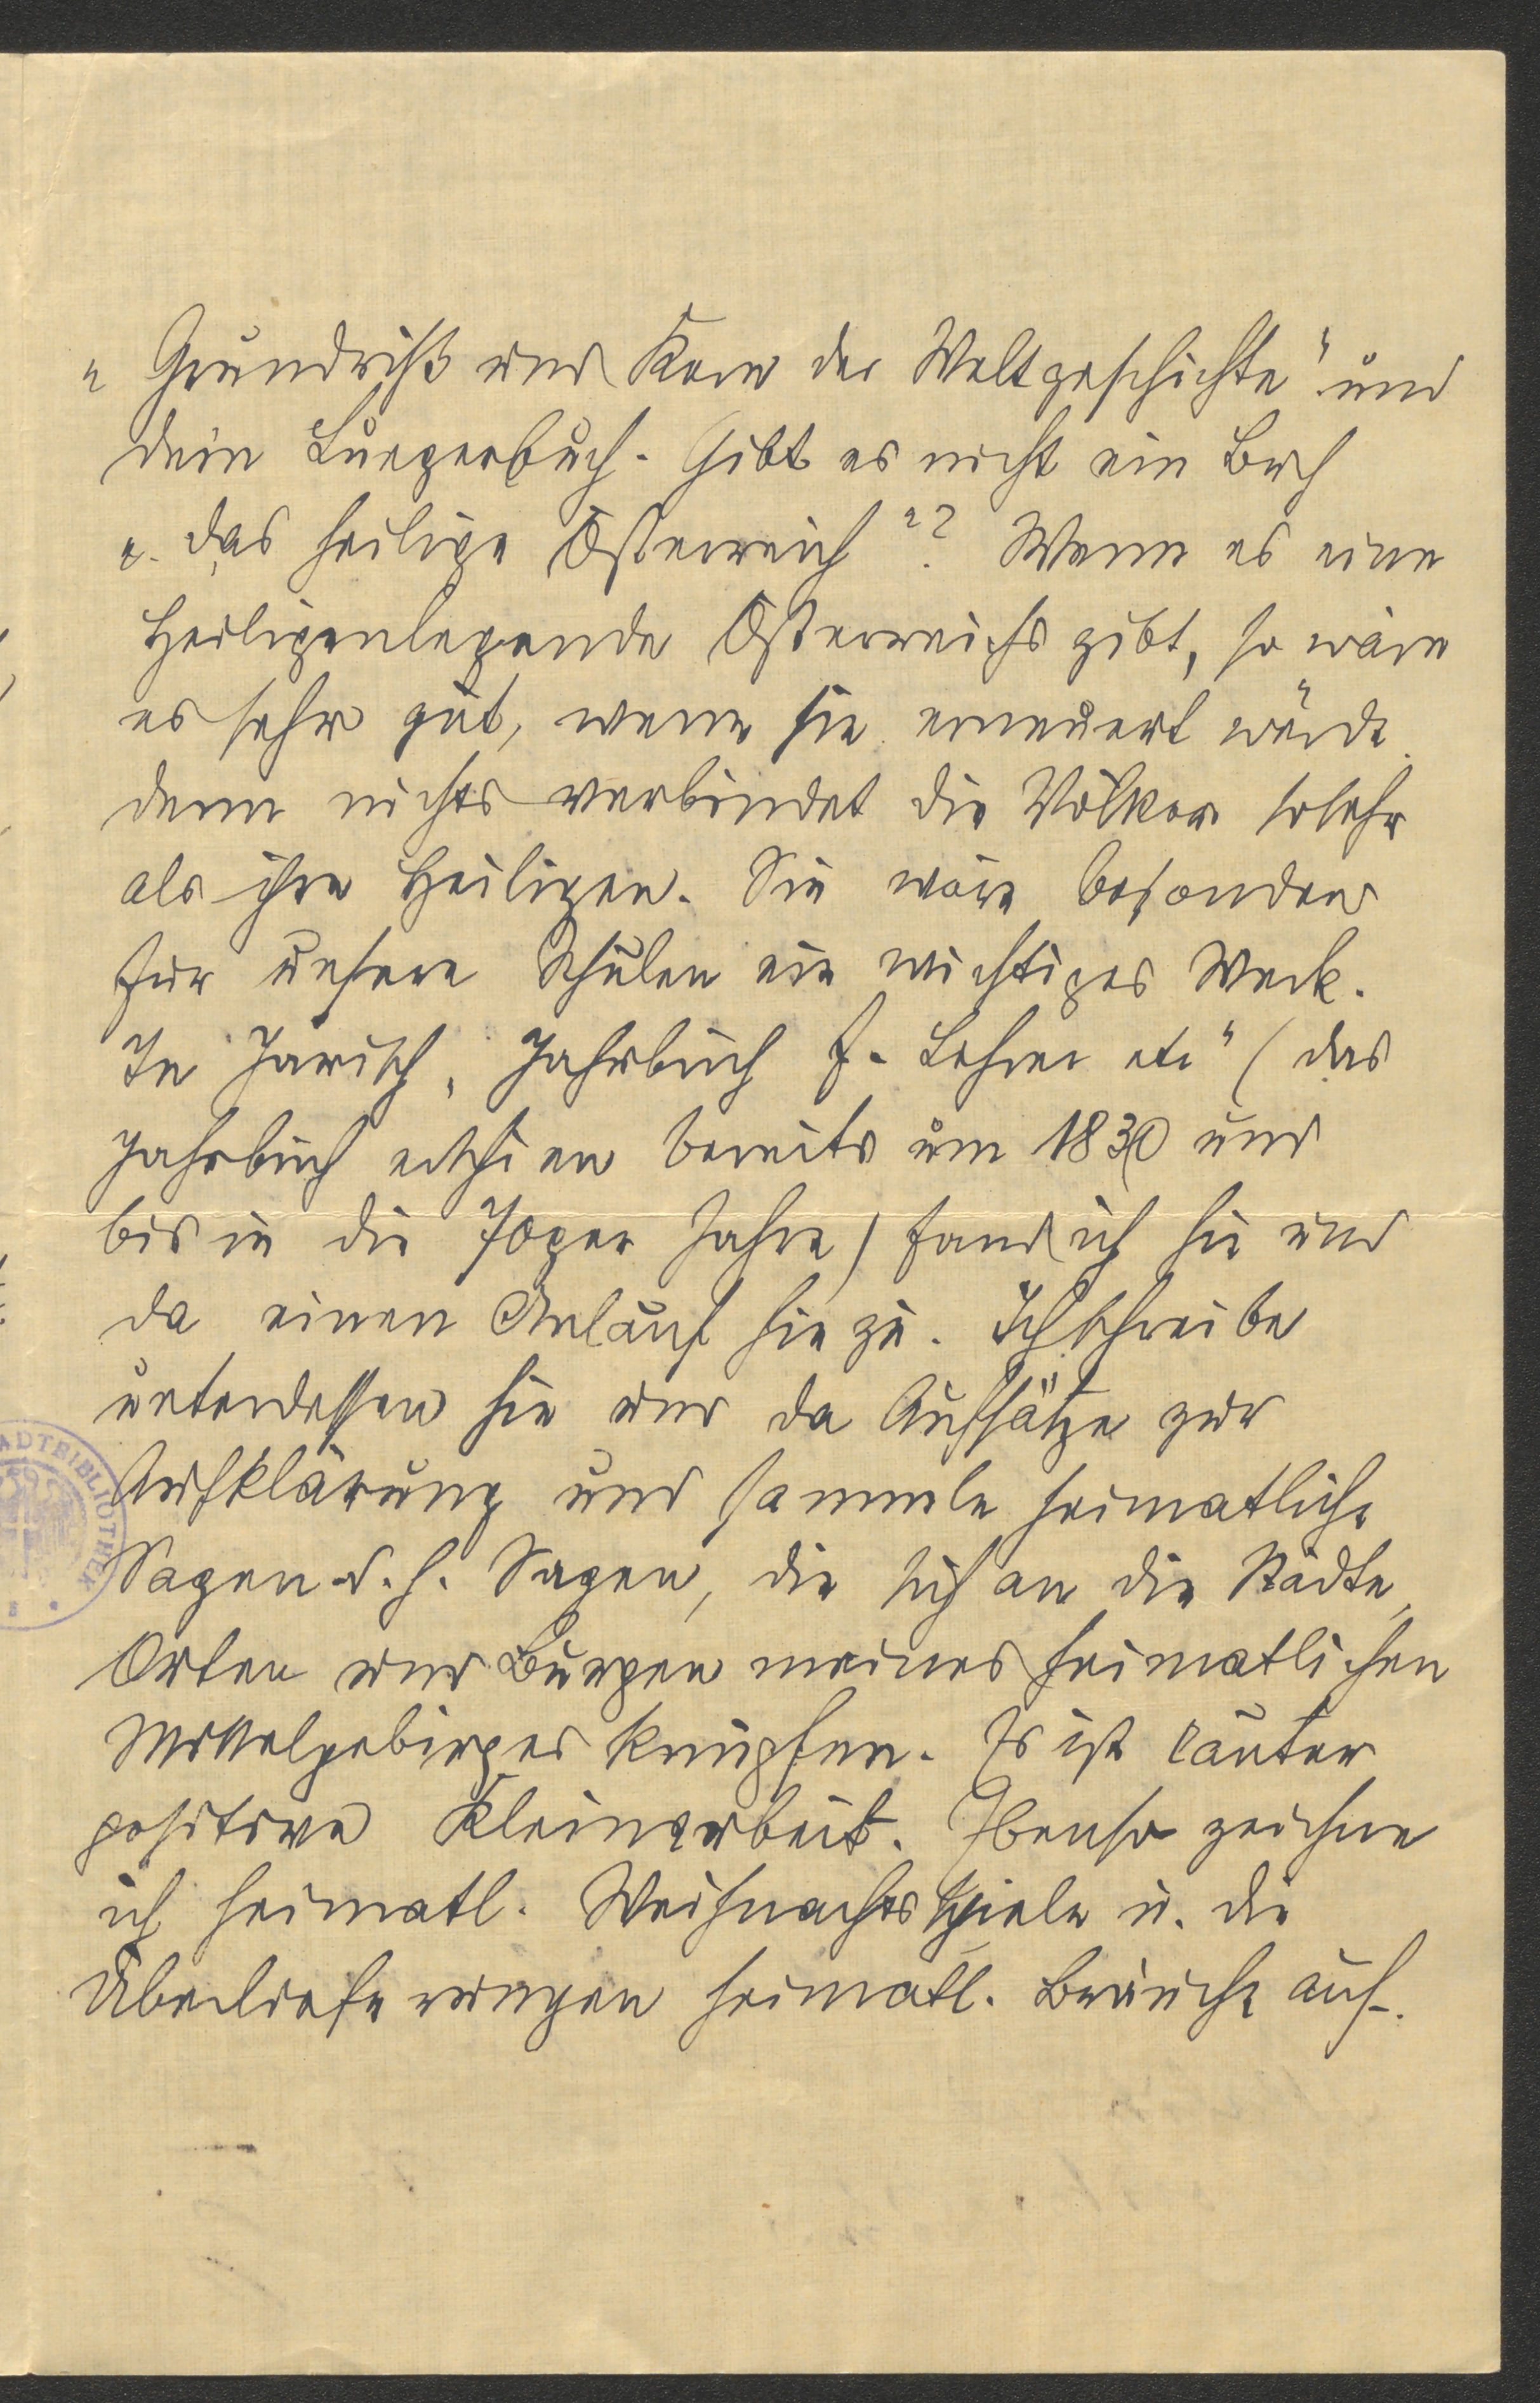 "Grundriß und Kern der Weltgeschichte" und
dein Luegerbuch. Gibt es nicht ein Buch
"das heilige Österreich"? Wenn es eine
Heiligenlegende Österreichs gibt, so wäre
es sehr gut, wenn sie erneuert würde
denn nichts verbindet die Völker sosehr
als ihre Heiligen. Sie wäre besonders
für unsere Schulen ein wichtiges Werk.
In Jarisch "Jahrbuch f. Lehrer etc" (das
Jahrbuch erschien bereits um 1830 und
bis in die 70ger Jahre) fand ich hie und
da einen Anlauf hiezu. Ich schreibe
unterdessen hie und da Aufsätze zur
Aufklärung und sammle heimatliche
Sagen d. h. Sagen, die sich an die Städte,
Orten und Burgen meines heimatlichen
Mittelgebirges knüpfen. Es ist lauter
positive Kleinarbeit. Ebenso zeichne
ich heimatl. Weihnachtsspiele u. die
Überlieferungen heimatl. Bräuche auf.
ADTBIBLIOTHEK